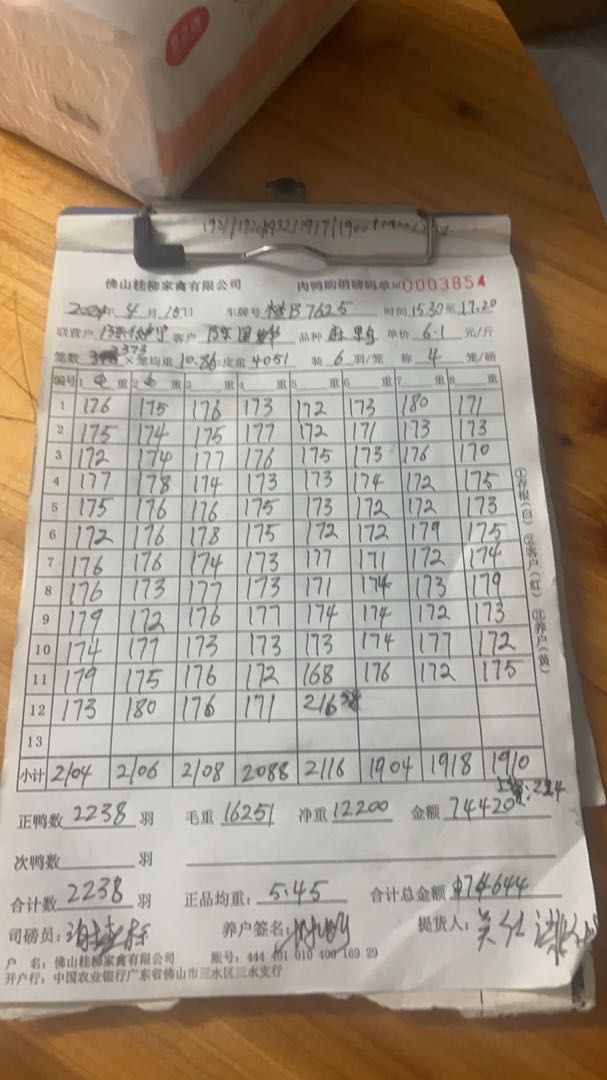 1931/1926/1932/1917/1900+1900
佛山桂柳家禽有限公司 肉鸭购销磅码单 №0003854
2024年4月18日 车牌号 桂B7625 时间15.30至17.20
联营户 客户 陈国 品种 麻鸭 单价 6.1 元/斤
笼数 373 ×笼均重 10.86 皮重 4051 装 6 羽/笼 称 4 笼/磅
编号 1 毛 重 2 毛 重 3 重 4 重 5 重 6 重 7 重 8 重
1 176 175 176 173 172 173 180 171
2 175 174 175 177 172 171 173 173
3 172 174 177 176 175 173 176 170
4 177 178 174 173 173 174 172 175
5 175 176 176 175 173 172 172 173
6 172 176 178 175 172 172 179 175
7 176 176 174 173 177 171 172 174
8 176 173 177 173 171 174 173 179
9 179 172 176 177 174 174 172 173
10 174 177 173 173 173 174 177 172
11 179 175 176 172 168 176 172 175
12 173 180 176 171 216
13
小计 2104 2106 2108 2088 2116 1904 1918 1910
①存根(白) ②客户(红) ③养户(黄)
224
正鸭数 2238 羽 毛重 16251 净重 12200 金额 74420
次鸭数 羽
合计数 2238 羽 正品均重: 5.45 合计总金额 74644
司磅员: 养户签名: 提货人:
户 名: 佛山桂柳家禽有限公司 账号: 444 401 010 400 169 29
开户行: 中国农业银行广东省佛山市三水区三水支行